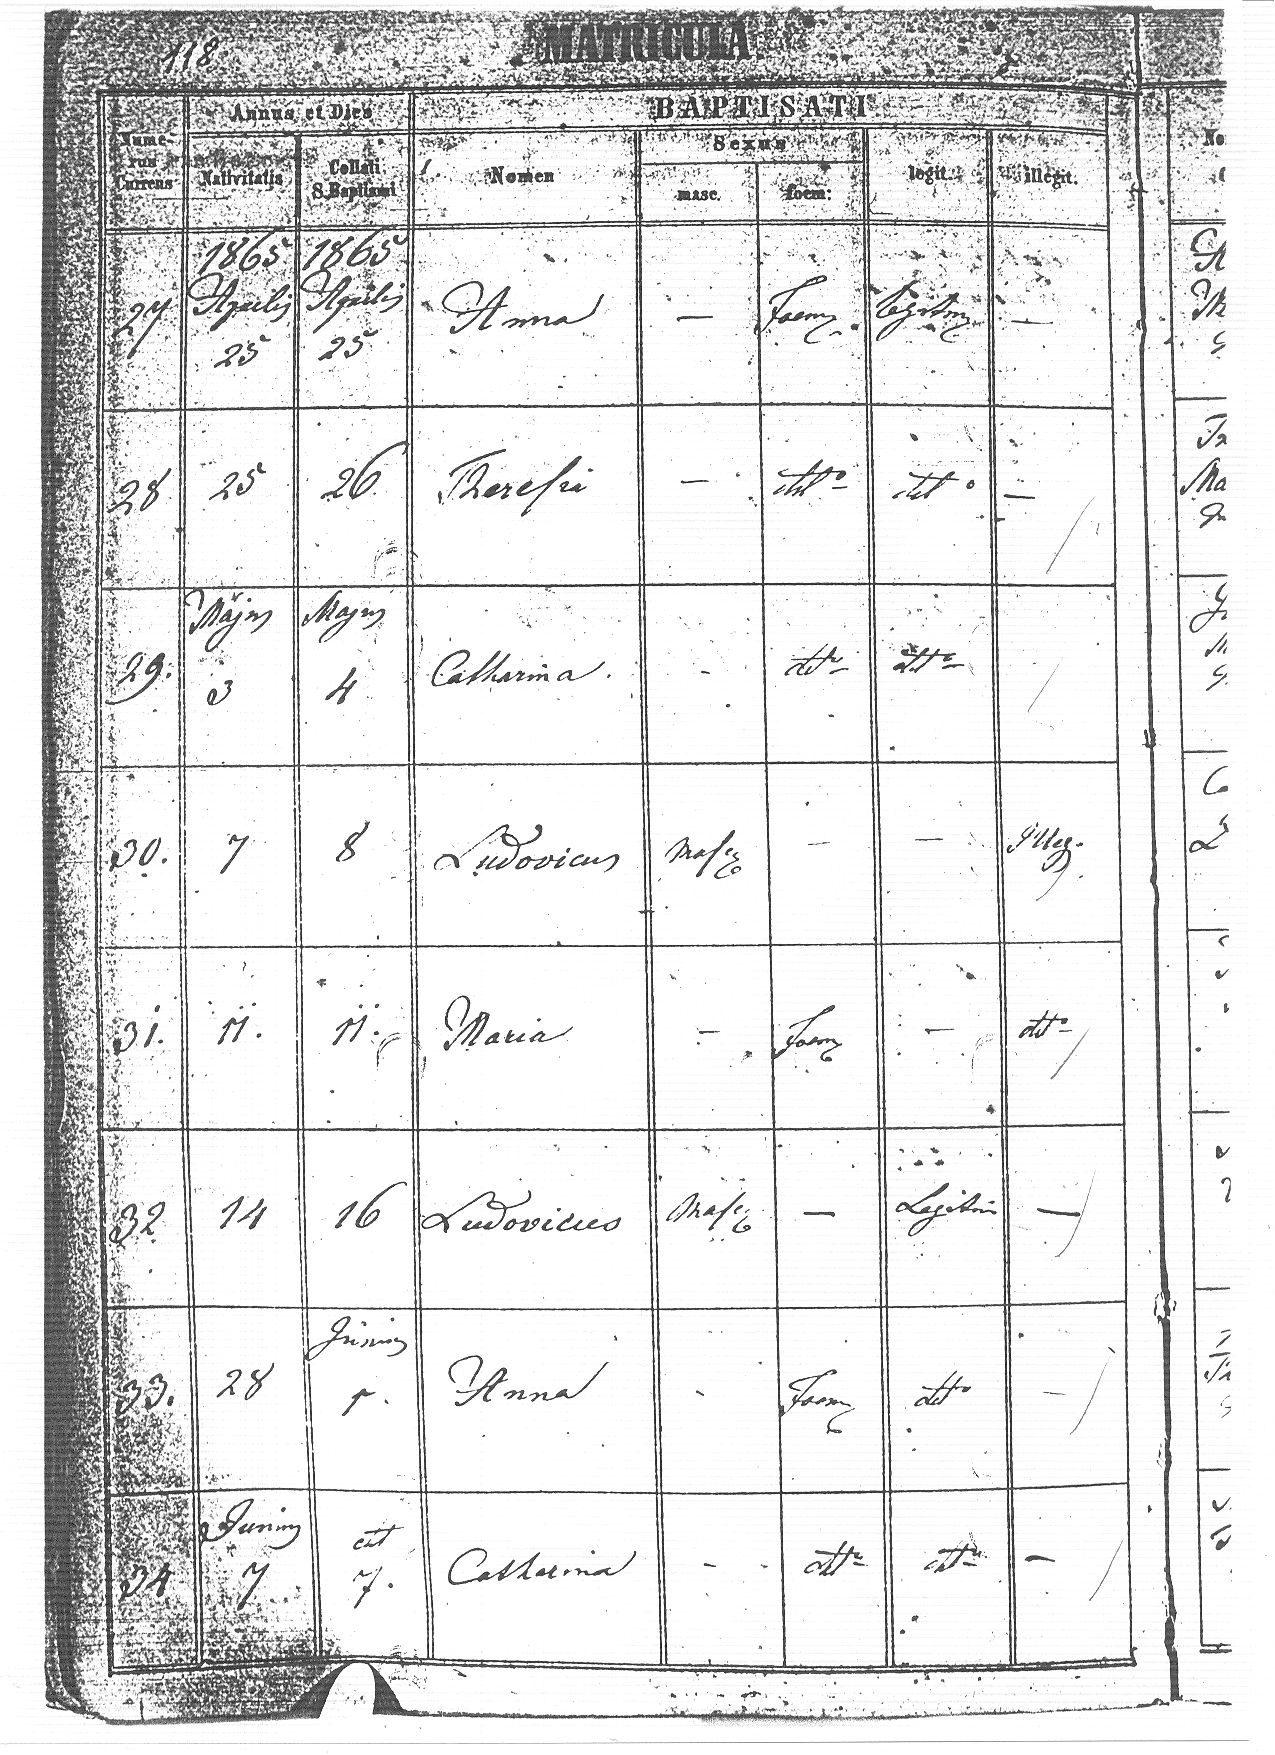 118
MATRICULA
Numerus Currens
Annus et Dies
Nativitatis
Collati S. Baptismi
BAPTISATI
Nomen
Sexus
masc.
foem:
legit.
illegit.
1865 1865
27 Aprilis 25 Aprilis 25 Anna — Foem — 
28 25 26 Theresia — ditto ditto —
29. Majus 3 Majus 4 Catharina. - ditto ditto
30. 7 8 Ludovicus Masc — — Illeg.
31. 11. 11. Maria — Foem — ditto
32 14 16 Ludovicus Masc — Legitim —
33. 28 Junius Anna - Foem ditto —
34 Junius 7 7. Catharina - ditto ditto —